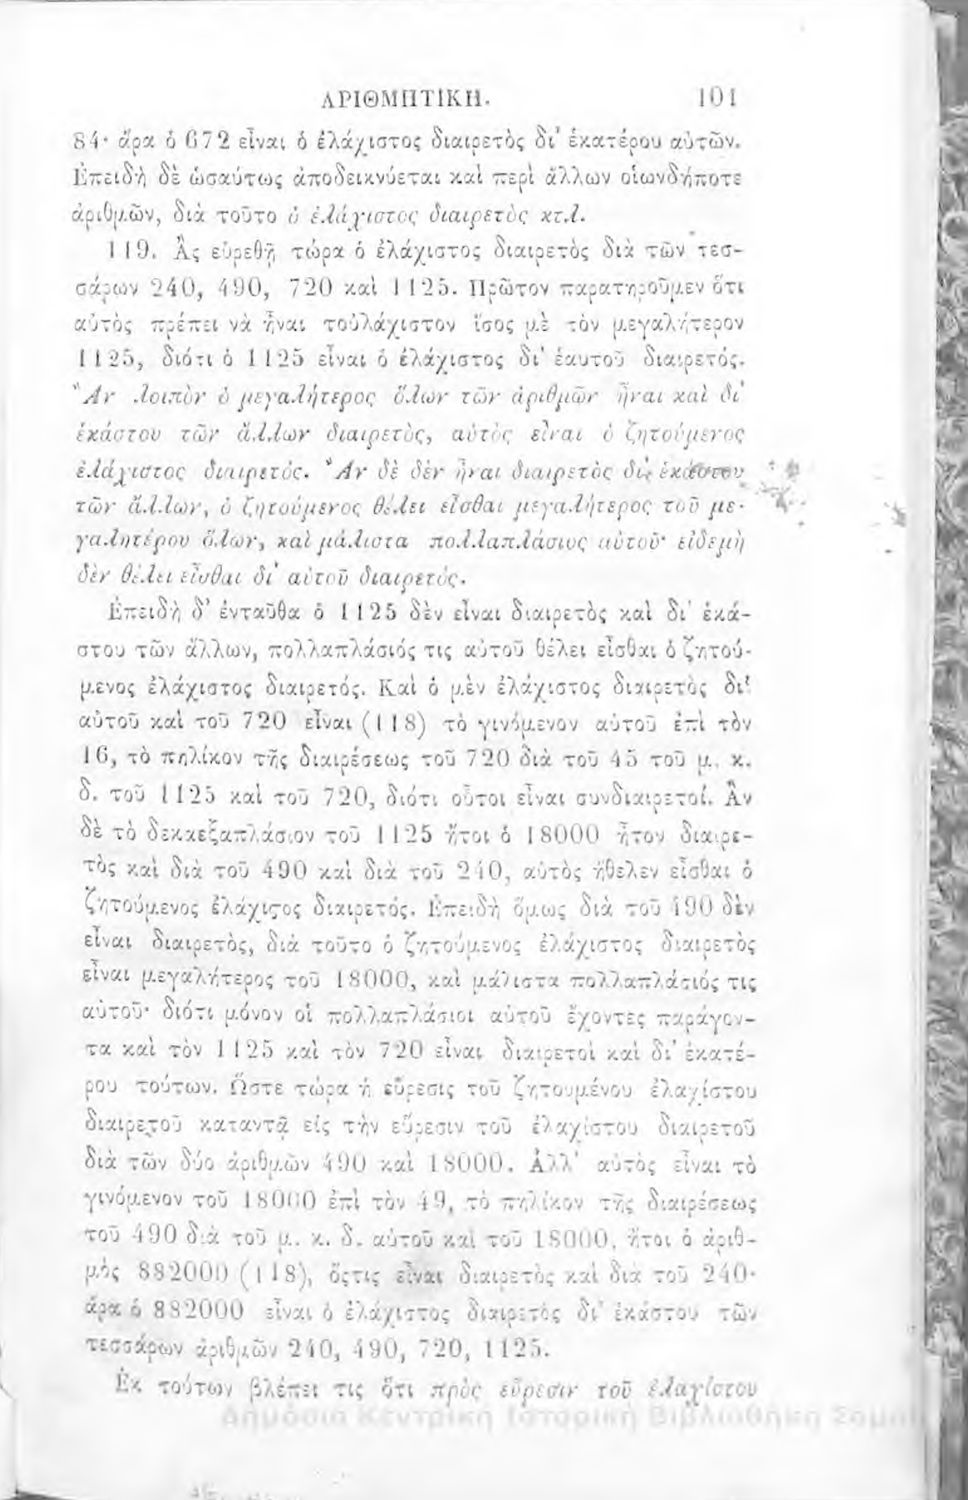 ΑΡΙΘΜΗΤΙΚΗ. 101
84· ἄρα ὁ 672 εἶναι ὁ ἐλάχιστος διαιρετὸς δι’ ἑκατέρου αὐτῶν.
Ἐπειδὴ δὲ ὡσαύτως ἀποδεικνύεται καὶ περὶ ἄλλων οἱωνδήποτε
ἀριθμῶν, διὰ τοῦτο ὁ ἐλάχιστος διαιρετὸς κτλ.
119. Ἂς εὑρεθῇ τώρα ὁ ἐλάχιστος διαιρετὸς διὰ τῶν τεσ-
σάρων 240, 490, 720 καὶ 1125. Πρῶτον παρατηροῦμεν ὅτι
αὐτὸς πρέπει νὰ ἦναι τοὐλάχιστον ἴσος μὲ τὸν μεγαλήτερον
1125, διότι ὁ 1125 εἶναι ὁ ἐλάχιστος δι’ ἑαυτοῦ διαιρετός.
Ἂν λοιπὸν ὁ μεγαλήτερος ὅλων τῶν ἀριθμῶν ἦναι καὶ δι’
ἑκάστου τῶν ἄλλων διαιρετὸς, αὐτὸς εἶναι ὁ ζητούμενος
ἐλάχιστος διαιρετός. Ἂν δὲ δὲν ἦναι διαιρετὸς δι’ ἑκάστου
τῶν ἄλλων, ὁ ζητούμενος θέλει εἶσθαι μεγαλήτερος τοῦ με-
γαλητέρου ὅλων, καὶ μάλιστα πολλαπλάσιος αὐτοῦ· εἰδεμὴ
δὲν θέλει εἶσθαι δι’ αὐτοῦ διαιρετός.
Ἐπειδὴ δ’ ἐνταῦθα ὁ 1125 δὲν εἶναι διαιρετὸς καὶ δι’ ἑκά-
στου τῶν ἄλλων, πολλαπλάσιός τις αὐτοῦ θέλει εἶσθαι ὁ ζητού-
μενος ἐλάχιστος διαιρετός. Καὶ ὁ μὲν ἐλάχιστος διαιρετὸς δι’
αὐτοῦ καὶ τοῦ 720 εἶναι (118) τὸ γινόμενον αὐτοῦ ἐπὶ τὸν
16, τὸ πηλίκον τῆς διαιρέσεως τοῦ 720 διὰ τοῦ 45 τοῦ μ. κ.
δ. τοῦ 1125 καὶ τοῦ 720, διότι οὗτοι εἶναι συνδιαιρετοί. Ἂν
δὲ τὸ δεκαεξαπλάσιον τοῦ 1125 ἤτοι ὁ 18000 ἦτον διαιρε-
τὸς καὶ διὰ τοῦ 490 καὶ διὰ τοῦ 240, αὐτὸς ἤθελεν εἶσθαι ὁ
ζητούμενος ἐλάχιστος διαιρετός. Ἐπειδὴ ὅμως διὰ τοῦ 490 δὲν
εἶναι διαιρετὸς, διὰ τοῦτο ὁ ζητούμενος ἐλάχιστος διαιρετὸς
εἶναι μεγαλήτερος τοῦ 18000, καὶ μάλιστα πολλαπλάσιός τις
αὐτοῦ· διότι μόνον οἱ πολλαπλάσιοι αὐτοῦ ἔχοντες παράγον-
τα καὶ τὸν 1125 καὶ τὸν 720 εἶναι διαιρετοὶ καὶ δι’ ἑκατέ-
ρου τούτων. Ὥστε τώρα ἡ εὕρεσις τοῦ ζητουμένου ἐλαχίστου
διαιρετοῦ καταντᾷ εἰς τὴν εὕρεσιν τοῦ ἐλαχίστου διαιρετοῦ
διὰ τῶν δύο ἀριθμῶν 490 καὶ 18000. Ἀλλ’ αὐτὸς εἶναι τὸ
γινόμενον τοῦ 18000 ἐπὶ τὸν 49, τὸ πηλίκον τῆς διαιρέσεως
τοῦ 490 διὰ τοῦ μ. κ. δ. αὐτοῦ καὶ τοῦ 18000, ἤτοι ὁ ἀριθ-
μὸς 882000 (118), ὅςτις εἶναι διαιρετὸς καὶ διὰ τοῦ 240·
ἄρα ὁ 882000 εἶναι ὁ ἐλάχιστος διαιρετὸς δι’ ἑκάστου τῶν
τεσσάρων ἀριθμῶν 240, 490, 720, 1125.
Ἐκ τούτων βλέπει τις ὅτι πρὸς εὕρεσιν τοῦ ἐλαχίστου
Δημόσια Κεντρική Ιστορική Βιβλιοθήκη